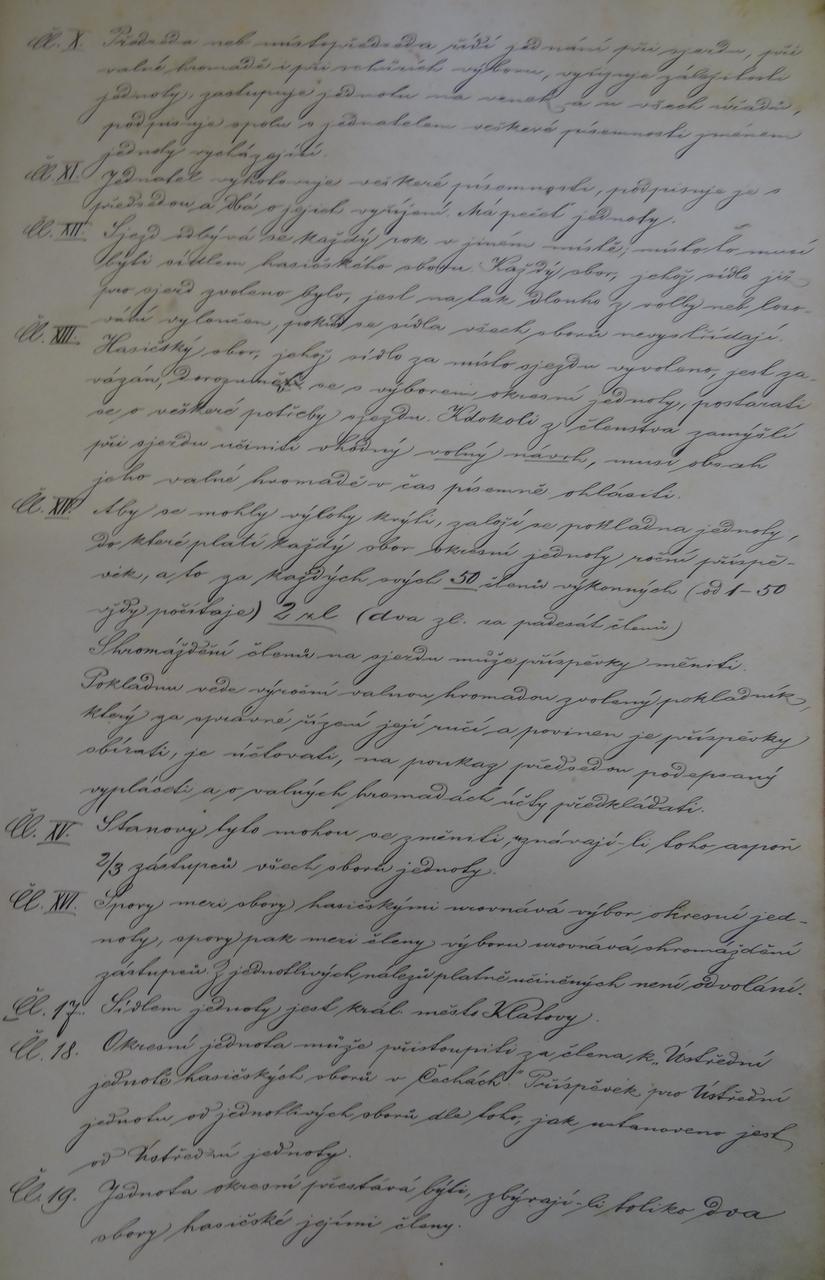 Čl. X. Předseda neb místopředseda řídí jednání při sjezdu, při
valné hromadě i při schůzích výboru, vyřizuje záležitosti
jednoty, zastupuje jednotu na venek a u všech úřadů,
podpisuje spolu s jednatelem veškeré písemnosti jménem
jednoty vycházející.
Čl. XI. Jednatel vyhotovuje veškeré písemnosti, podpisuje je s
předsedou a dbá o jejich vyřízení. Má pečeť jednoty.
Čl. XII. Sjezd odbývá se každý rok v jiném místě; místo to musí
býti sídlem hasičského sboru. Každý sbor, jehož sídlo již
pro sjezd zvoleno bylo, jest na tak dlouho z volby neb loso-
vání vyloučen, pokud se sídla všech sborů nevystřídají.
Čl. XIII. Hasičský sbor, jehož sídlo za místo sjezdu vyvoleno, jest za-
vázán, dorozuměv se s výborem okresní jednoty, postarati
se o veškeré potřeby sjezdu. Kdokoli z členstva zamýšlí
při sjezdu učiniti vhodný volný návrh, musí obsah
jeho valné hromadě v čas písemně ohlásiti.
Čl. XIV. Aby se mohly výlohy krýti, založí se pokladna jednoty,
do které platí každý sbor okresní jednoty roční příspě-
vek, a to za každých svých 50 členů výkonných (od 1–50
vždy počítaje) 2 zl (dva zl. za padesát členů)
Shromáždění členů na sjezdu může příspěvky měniti.
Pokladnu vede výroční valnou hromadou zvolený pokladník,
který za správné řízení její ručí, a povinen je příspěvky
sbírati, je účtovati, na poukaz předsedou podepsaný
vypláceti a o valných hromadách účty předkládati.
Čl. XV. Stanovy tyto mohou se změniti, uznávají-li toho aspoň
2/3 zástupců všech sborů jednoty.
Čl. XVI. Spory mezi sbory hasičskými urovnává výbor okresní jed-
noty, spory pak mezi členy výboru urovnává shromáždění
zástupců. Z jednotlivých nálezů platně učiněných není odvolání.
Čl. 17. Sídlem jednoty jest král. město Klatovy.
Čl. 18. Okresní jednota může přistoupiti za člena k „Ústřední
jednotě hasičských sborů v Čechách“ Příspěvek pro Ústřední
jednotu od jednotlivých sborů dle toho, jak ustanoveno jest
od Ústřední jednoty.
Čl. 19. Jednota okresní přestává býti, zbývají-li toliko dva
sbory hasičské jejími členy.